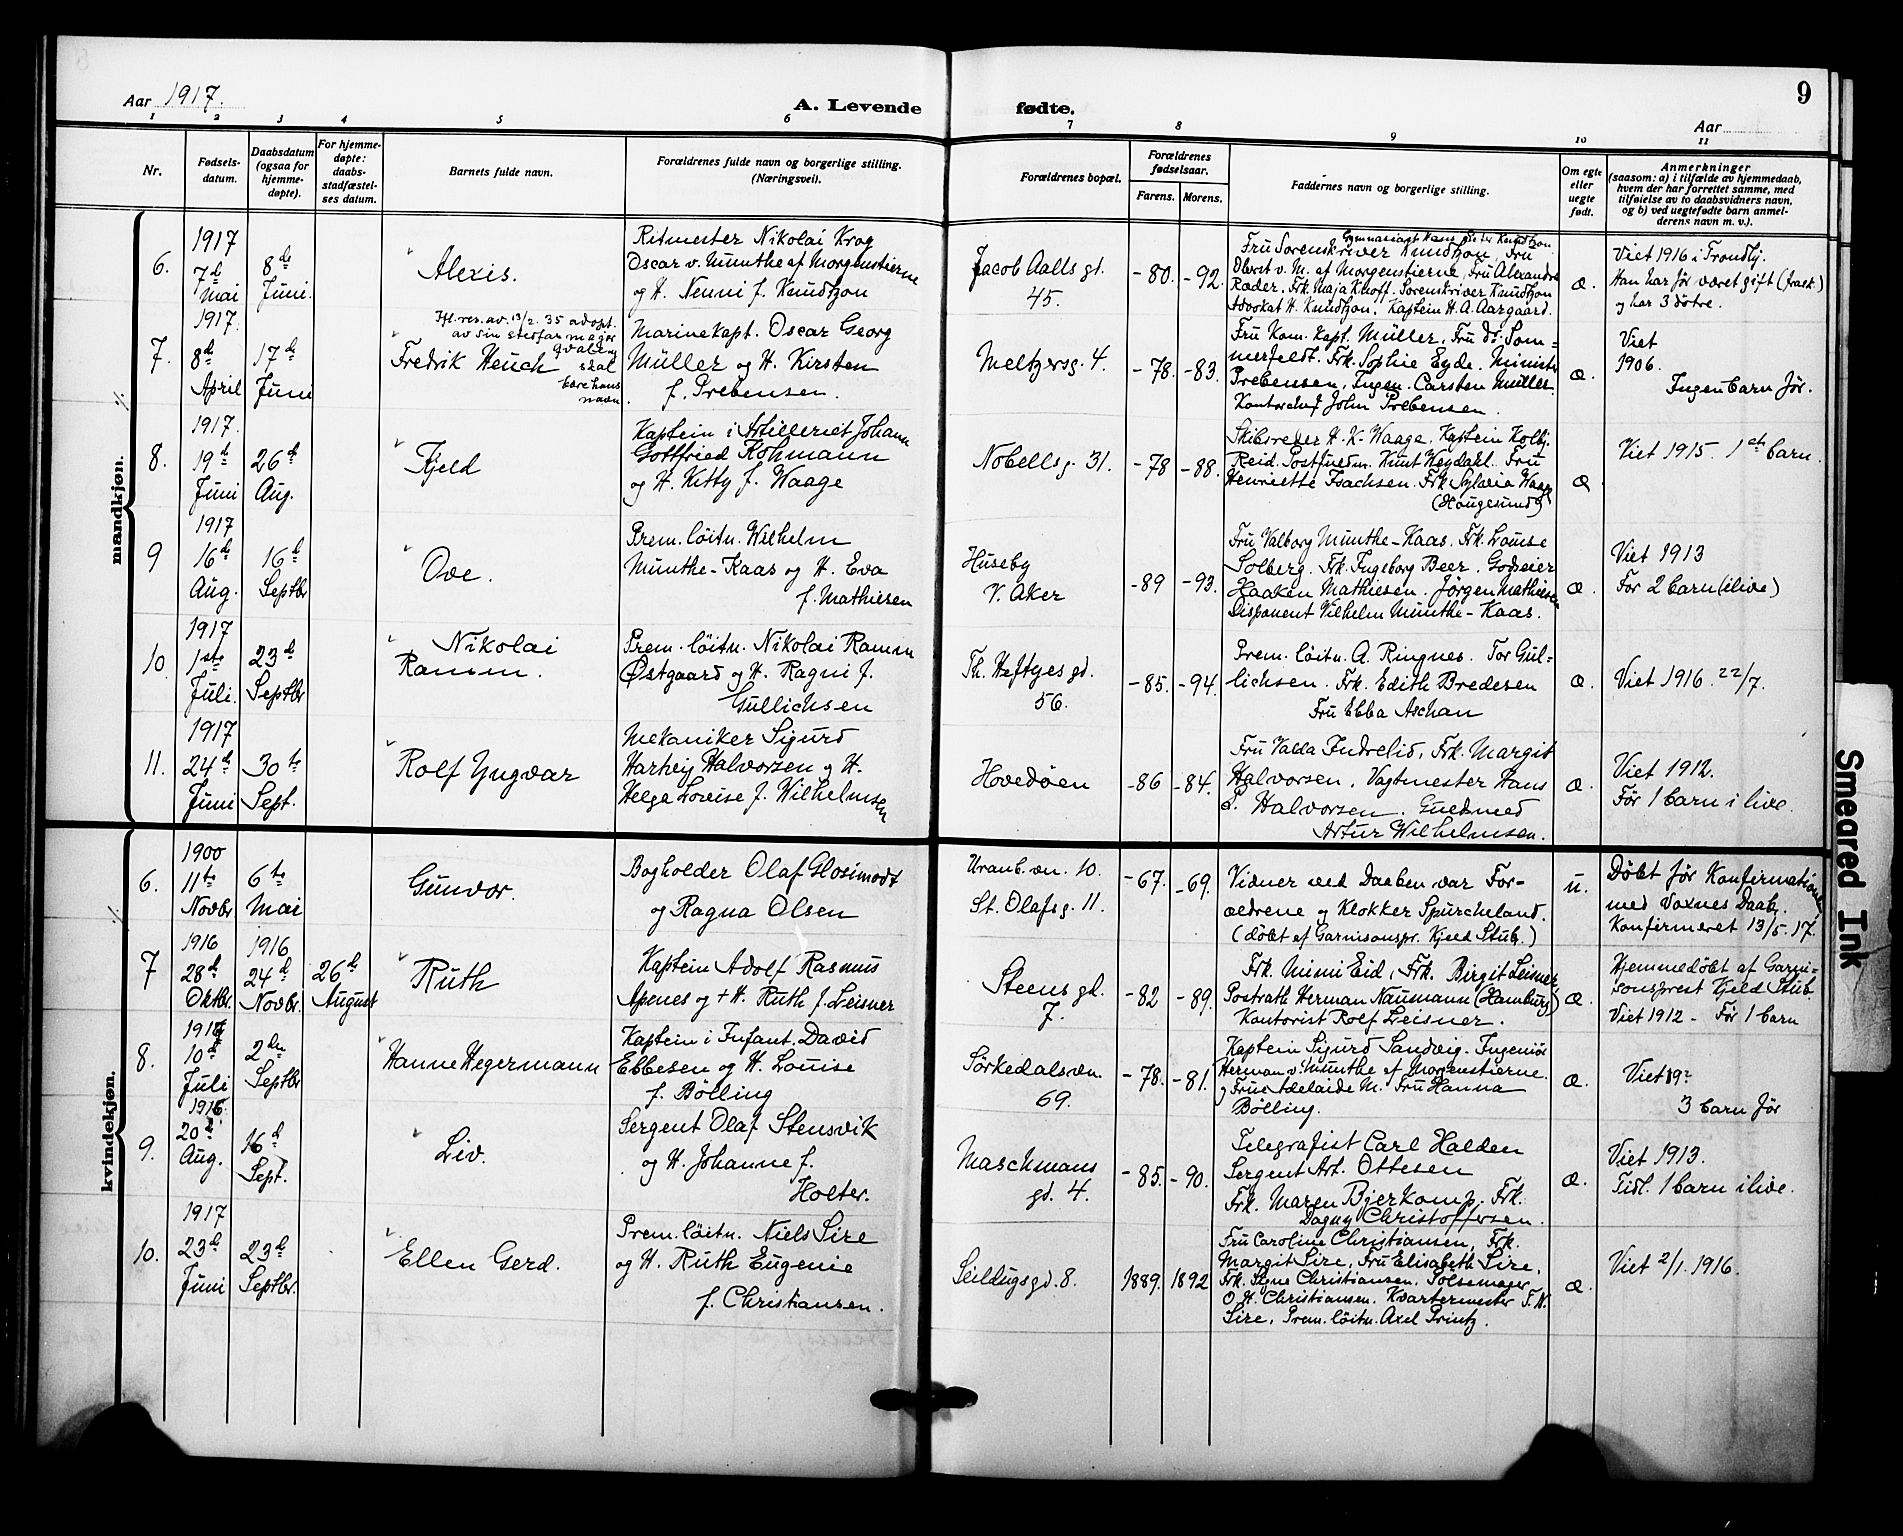 Aar 1917.
A. Levende
fødte.
9
Aar
1
2
3
4
5
6
7
8
9
10
11
Nr.
Fødsels-
datum.
Daabsdatum
(ogsaa for
hjemme-
døpte).
For hjemme-
døpte:
daabs-
stadfæstel-
ses datum.
Barnets fulde navn.
Forældrenes fulde navn og borgerlige stilling.
(Næringsvei).
Forældrenes bopæl.
Forældrenes
fødselsaar.
Farens.
Morens.
Faddernes navn og borgerlige stilling.
Om egte
eller
uegte
født.
Anmerkninger
(saasom: a) i tilfælde av hjemmedaab,
hvem der har forrettet samme, med
tilføielse av to daabsvidners navn,
og b) ved uegtefødte barn anmel-
derens navn m. v.).
mandkjøn.
6.
1917
7d
Mai
8de
Juni.
Alexis.
Ritmester Nikolai Krog
Oscar v. Munthe af Morgenstierne
og H. Nenni f. Knudtzon
Jacob Aalls gd.
45.
-80.
-92.
Gymnasiast Hans Peter Knudtzon
Fru Sorenskriver Knudtzon, Fru
Oberst v. M. af Morgenstierne, Fru Alexandra
Ræder, Frk. Maja Knoff. Sorenskriver Knudtzon
Advokat H. Knudtzon. Kaptein H. A. Aargaard.
æ.
Viet 1916 i Trondhj.
Han har før været gift (frask.)
og har 3 døtre.
7.
1917.
8d
April
17de
Juni
Kfl. res. av. 13/2. 35 adopt.
av sin stedfar major
Qvale
skal
bære hans
navn
Fredrik Heuch
Marinekapt. Oscar Georg
Müller og H. Kirsten
f. Prebensen.
Meltzersg. 4.
-78.
-83.
Fru Kom. Kapt. Müller, Fru Dr. Som-
merfeldt. Frk. Sophie Eyde. Minister
Prebensen, Ingen. Carsten Müller
Kontorchef John Prebensen.
æ.
Viet
1906.
Ingen barn før.
8.
1917.
19d
Juni
26d
Aug.
Kjeld
Kaptein i Artilleriet Johann
Gottfried Rohmann
og H. Kitty f. Waage
Nobellsg. 31.
-78
-88.
Skibsreder H. K. Waage, Kaptein Kolbj.
Reid. Postfuldm. Knut Heydahl. Fru
Henriette Isachsen. Frk Sylvia Waage
(Haugesund)
æ
Viet 1915. 1et barn.
9
1917
16d
Aug.
16d
Septbr
Ove.
Prem. løitn. Wilhelm
Munthe-Kaas og H. Eva
f. Mathiesen
Huseby
V. Aker
-89
-93.
Fru Valborg Munthe-Kaas. Frk. Louise
Solberg. Frk. Ingeborg Beer. Godseier
Haaken Mathiesen. Jørgen Mathiesen
Disponent Vilhelm Munthe-Kaas.
æ.
Viet 1913
Før 2 barn (ilive)
10
1917
1ste
Juli.
23d
Septbr
Nikolai
Ramm.
Prem. løitn. Nikolai Ramm
Østgaard og H. Ragni f.
Gullichsen
Th. Heftyes gd.
56.
-85.
-94.
Prem. løitn. A. Ringnes. Tor Gul-
lichsen. Frk. Edith Bredesen
Fru Ebba Aschan
æ.
Viet 1916. 22/7.
11.
1917
24d
Juni
30te
Sept.
Rolf Yngvar
Mekaniker Sigurd
Hartvig Halvorsen og H.
Helga Lovise f. Wilhelmsen
Hovedøen
-86
-84.
Fru Valda Indrelid, Frk. Margit
Halvorsen, Vagtmester Hans
L. Halvorsen. Guldsmed
Artur Wilhelmsen.
æ.
Viet 1912.
Før 1 barn i live.
kvindekjøn.
6.
1900
11te
Novbr
6te
Mai
Gunvor.
Bogholder Olaf Glosimodt
og Ragna Olsen
Uranb.vn. 10.
St. Olafsg. 11.
-67.
-69.
Vidner ved Daaben var For-
ældrene og Klokker Spurcheland.
(døbt af Garnisonspr. Kjeld Stub.)
u.
Døbt før Konfirmationen
med Voxnes Daab.
Konfirmeret 13/5. 17.
7
1916
28d
Oktbr.
1916
24d
Novbr.
26d
August
Ruth
Kaptein Adolf Rasmus
Apenes og + H. Ruth f. Leisner
Steens gd.
7.
-82
-89.
Frk. Mimi Eid, Frk. Birgit Leisner,
Postrath Herman Naumann (Hamburg)
Kontorist Rolf Leisner.
æ.
Hjemmedøbt af Garni-
sonsprest Kjeld Stub.
Viet 1912 - Før 1 barn
8.
1917
10d
Juli
2den
Septbr
Hanne Hegermann
Kaptein i Infant. David
Ebbesen og H. Louise
f. Bölling
Sørkedalsvn.
69.
-78.
-81.
Kaptein Sigurd Sandvig. Ingeniør
Herman v. Munthe af Morgenstierne.
og Frue Adelaide M. Fru Hanna
Bölling.
æ.
Viet 19?
3 barn før
9.
1916.
20d
Aug.
16d
Sept.
Liv.
Sergent Olaf Stensvik
og H. Johanne f.
Holter.
Maschmans
gd. 4.
-85.
-90.
Telegrafist Carl Halden
Sergent Art. Ottesen
Frk. Maren Bjerkamp. Frk.
Dagny Christoffersen.
æ.
Viet 1913.
Tidl. 1 barn ilive.
10.
1917
23d
Juni
23d
Septbr.
Ellen Gerd.
Prem. løitn. Niels Sire
og H. Ruth Eugenie
f. Christiansen.
Seildugsgd. 8.
1889.
1892
Fru Caroline Christiansen, Frk.
Margit Sire, Fru Elisabeth Sire,
Frk. Signe Christiansen, Pølsemager
O. H. Christiansen. Kvartermester T. N.
Sire, Prem. løitn. Axel Printz.
æ.
Viet 2/1. 1916.
Smeared Ink